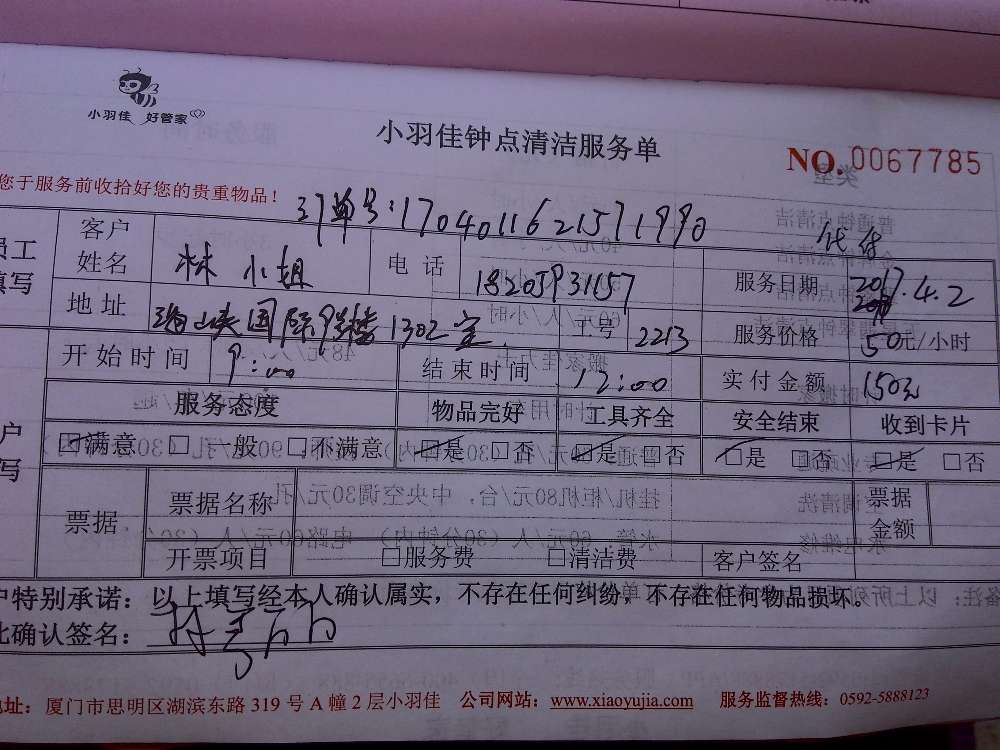 小羽佳 好管家
小羽佳钟点清洁服务单
NO.0067785
您于服务前收拾好您的贵重物品！
订单号:1704011621571990
员工
填写
客户姓名 林小姐 电话 18205931157 服务日期 2017.4.2
地址 海峡国际9号楼1302室 工号 2213 服务价格 50元/小时
开始时间 9:00 结束时间 12:00 实付金额 150元
服务态度 物品完好 工具齐全 安全结束 收到卡片
户
写
☑满意 □一般 □不满意 ☑是 □否 ☑是 □否 ☑是 □否 ☑是 □否
票据 票据名称 票据金额
开票项目 □服务费 □清洁费 客户签名
户特别承诺：以上填写经本人确认属实，不存在任何纠纷，不存在任何物品损坏。
此确认签名：
地址：厦门市思明区湖滨东路319号A幢2层小羽佳 公司网站：www.xiaoyujia.com 服务监督热线：0592-5888123